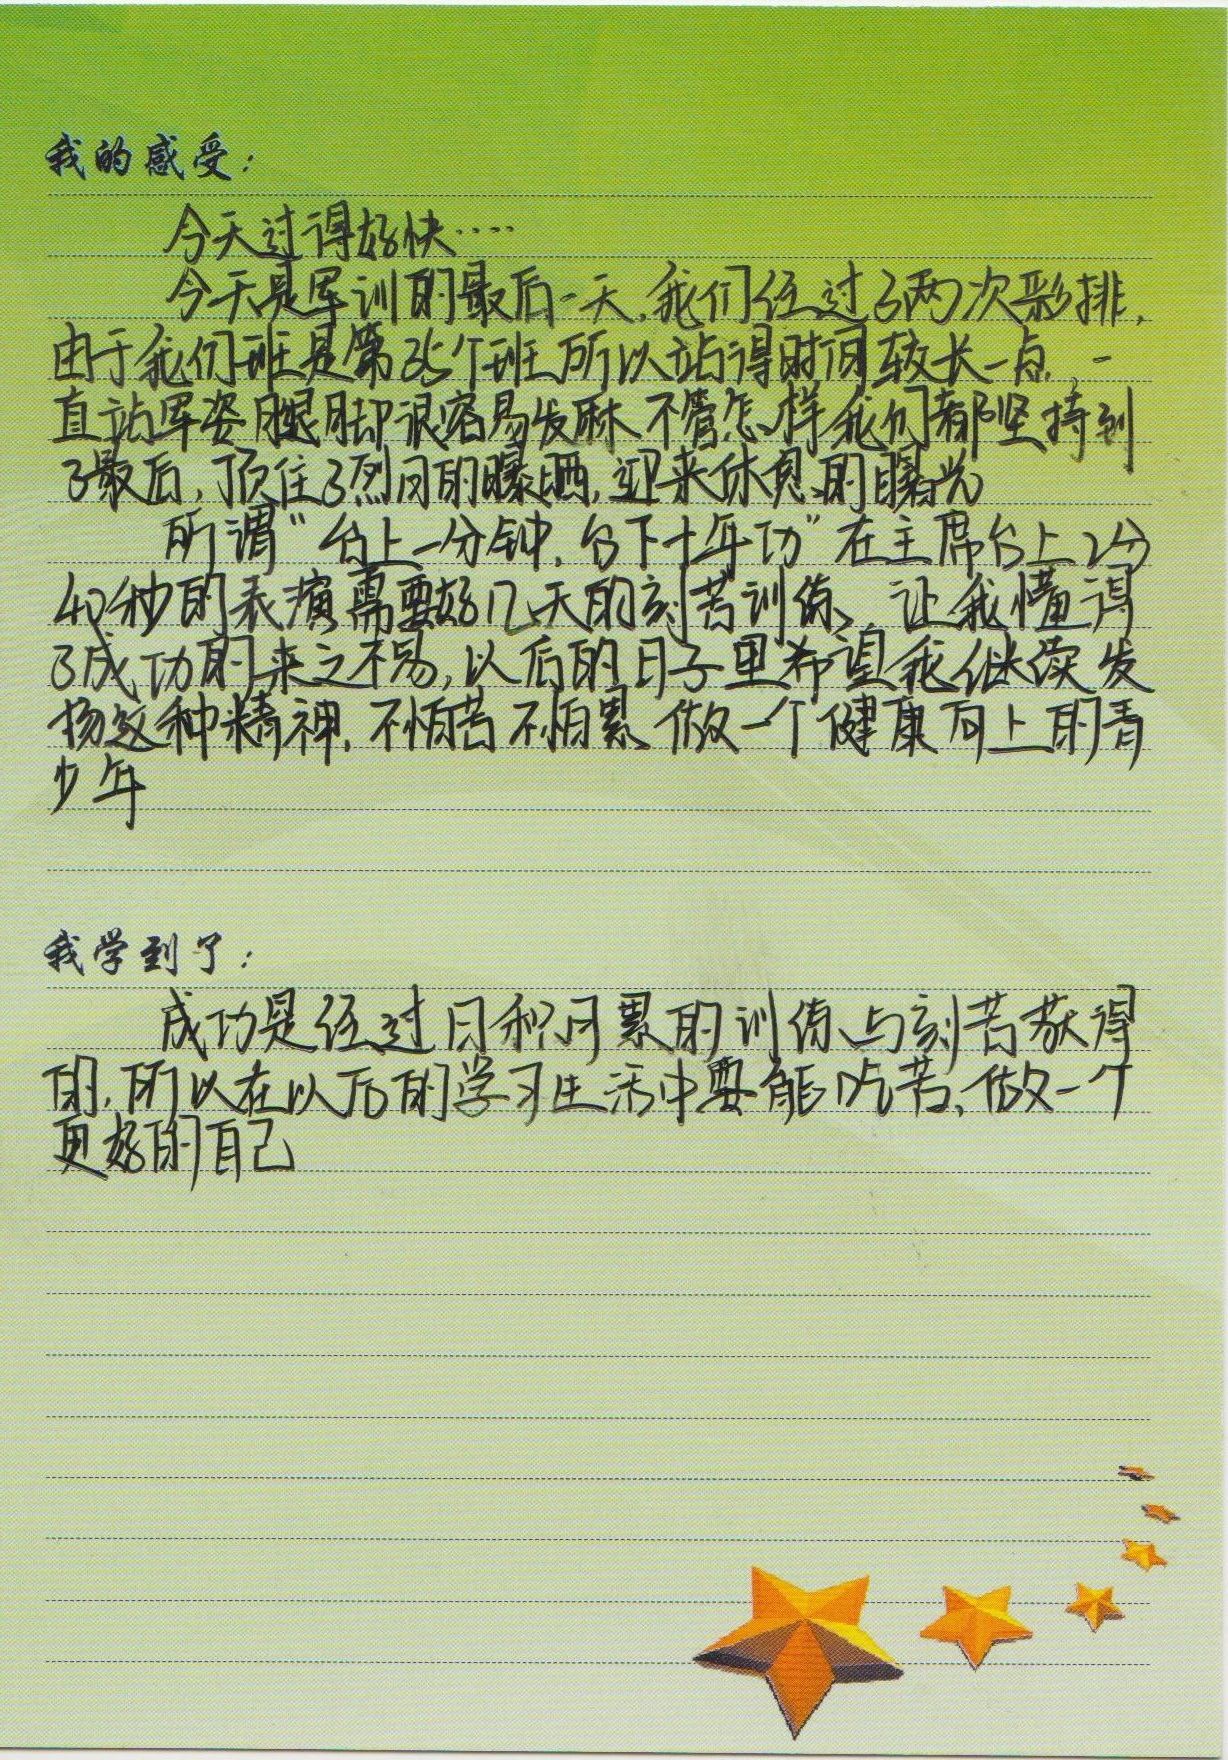 我的感受：
今天过得好快……
今天是军训的最后一天，我们经过了两次彩排，
由于我们班是第35个班，所以站得时间较长一点，一
直站军姿腿脚很容易发麻，不管怎样我们都坚持到
了最后，顶住了烈日的曝晒，迎来休息的曙光
所谓“台上一分钟，台下十年功”在主席台上2分
40秒的表演需要好几天的刻苦训练、让我懂得
了成功的来之不易，以后的日子里希望我继续发
扬这种精神，不怕苦不怕累、做一个健康向上的青
少年
我学到了：
成功是经过日积月累的训练与刻苦获得
的，所以在以后的学习生活中要能吃苦、做一个
更好的自己